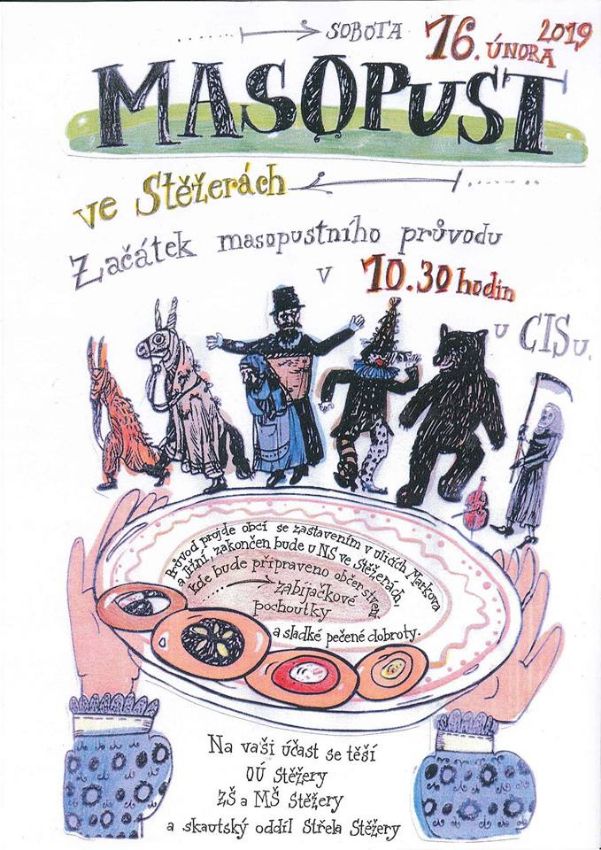 SOBOTA 16. ÚNORA 2019
MASOPUST
ve Stěžerách
Začátek masopustního průvodu
v 10.30 hodin
u CISu.
Průvod projde obcí se zastavením v ulicích Markova
a Jižní, zakončen bude u NS ve Stěžerách,
kde bude připraveno občerstvení
zabijačkové
pochoutky
a sladké pečené dobroty.
Na vaši účast se těší
OÚ Stěžery
ZŠ a MŠ Stěžery
a skautský oddíl Střela Stěžery